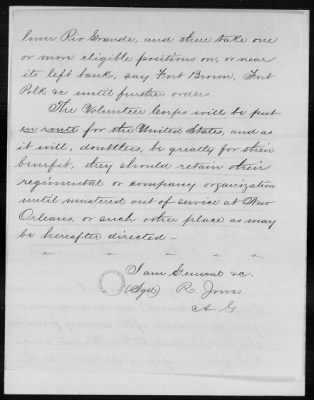 lower Rio Grande, and there take one
or more eligible positions on, or near
its left bank, say Fort Brown, Fort
Polk &c until further orders
The Volunteer Corps will be put
en route for the United States, and as
it will, doubtless, be greatly for their
benefit, they should retain their
regimental or company organization
until mustered out of service at New
Orleans, or such other place as may
be hereafter directed —
I am General &c.
(Sgd) R. Jones
A. G.